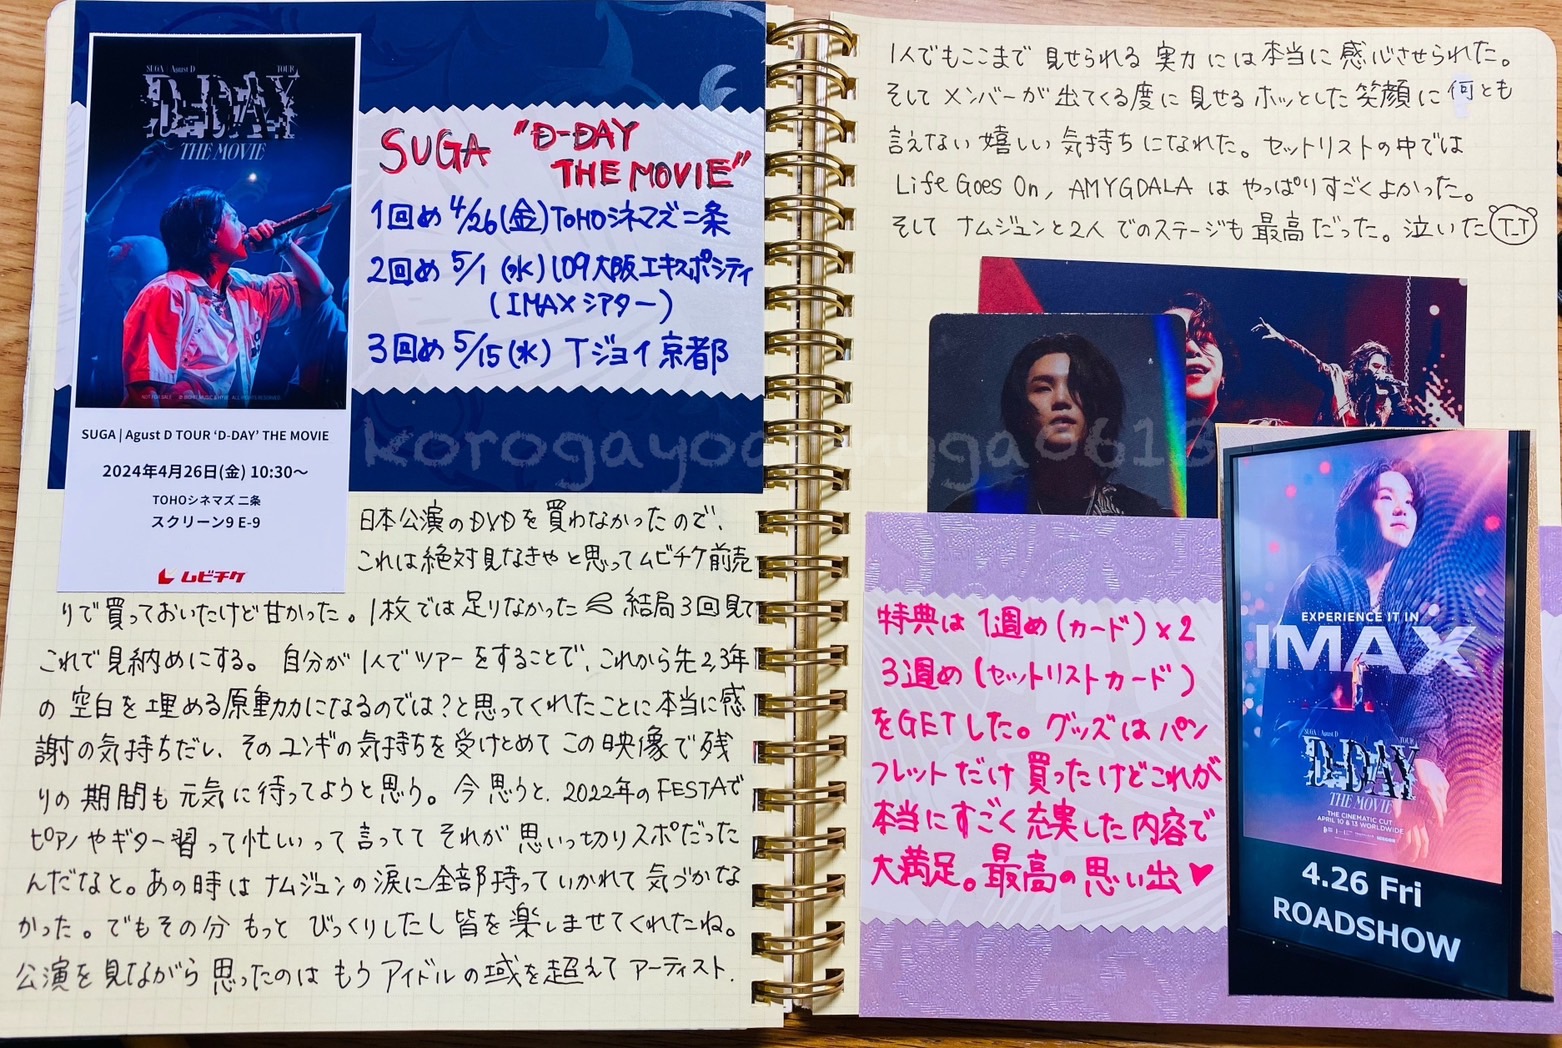 SUGA | Agust D TOUR
D-DAY
THE MOVIE
SUGA | Agust D TOUR ‘D-DAY’ THE MOVIE
2024年4月26日(金) 10:30～
TOHOシネマズ 二条
スクリーン9 E-9
ムビチケ
SUGA “D-DAY
THE MOVIE”
1回め 4/26(金) TOHOシネマズ二条
2回め 5/1 (水) 109大阪エキスポシティ
(IMAXシアター)
3回め 5/15(水) Tジョイ京都
korogayo
yga0613
日本公演のDVDを買わなかったので、
これは絶対見なきゃと思ってムビチケ前売
りで買っておいたけど甘かった。1枚では足りなかった 結局3回見て
これで見納めにする。自分が1人でツアーをすることで、これから先2,3年
の空白を埋める原動力になるのでは?と思ってくれたことに本当に感
謝の気持ちだし、そのユンギの気持ちを受けとめてこの映像で残
りの期間も元気に待ってようと思う。今思うと、2022年のFESTAで
ピアノやギター習って忙しいって言ってて それが思いっ切りスポだった
んだなと。あの時はナムジュンの涙に全部持っていかれて気づかな
かった。でもその分もっと びっくりしたし皆を楽しませてくれたね。
公演を見ながら思ったのは もうアイドルの域を超えて アーティスト.
1人でもここまで見せられる実力には本当に感心させられた。
そしてメンバーが出てくる度に見せるホッとした笑顔に何とも
言えない嬉しい気持ちになれた。セットリストの中では
Life Goes On, AMYGDALA は やっぱりすごくよかった。
そして ナムジュンと2人でのステージも最高だった。泣いた T_T
特典は1週め(カード)×2
3週め(セットリストカード)
をGETした。グッズはパン
フレットだけ買ったけどこれが
本当にすごく充実した内容で
大満足。最高の思い出♥
EXPERIENCE IT IN
IMAX
SUGA | Agust D TOUR
D-DAY
THE MOVIE
THE CINEMATIC CUT
APRIL 10 & 13 WORLDWIDE
4.26 Fri
ROADSHOW